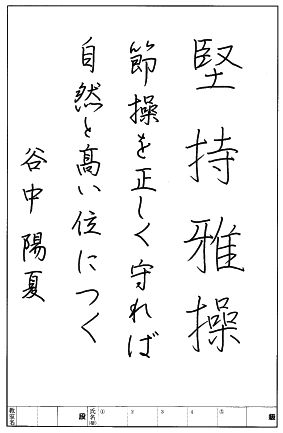 堅持雅操
節操を正しく守れば
自然と高い位につく
谷中陽夏
教室名
段
氏名(号)
① 2 3 4 ⑤
級